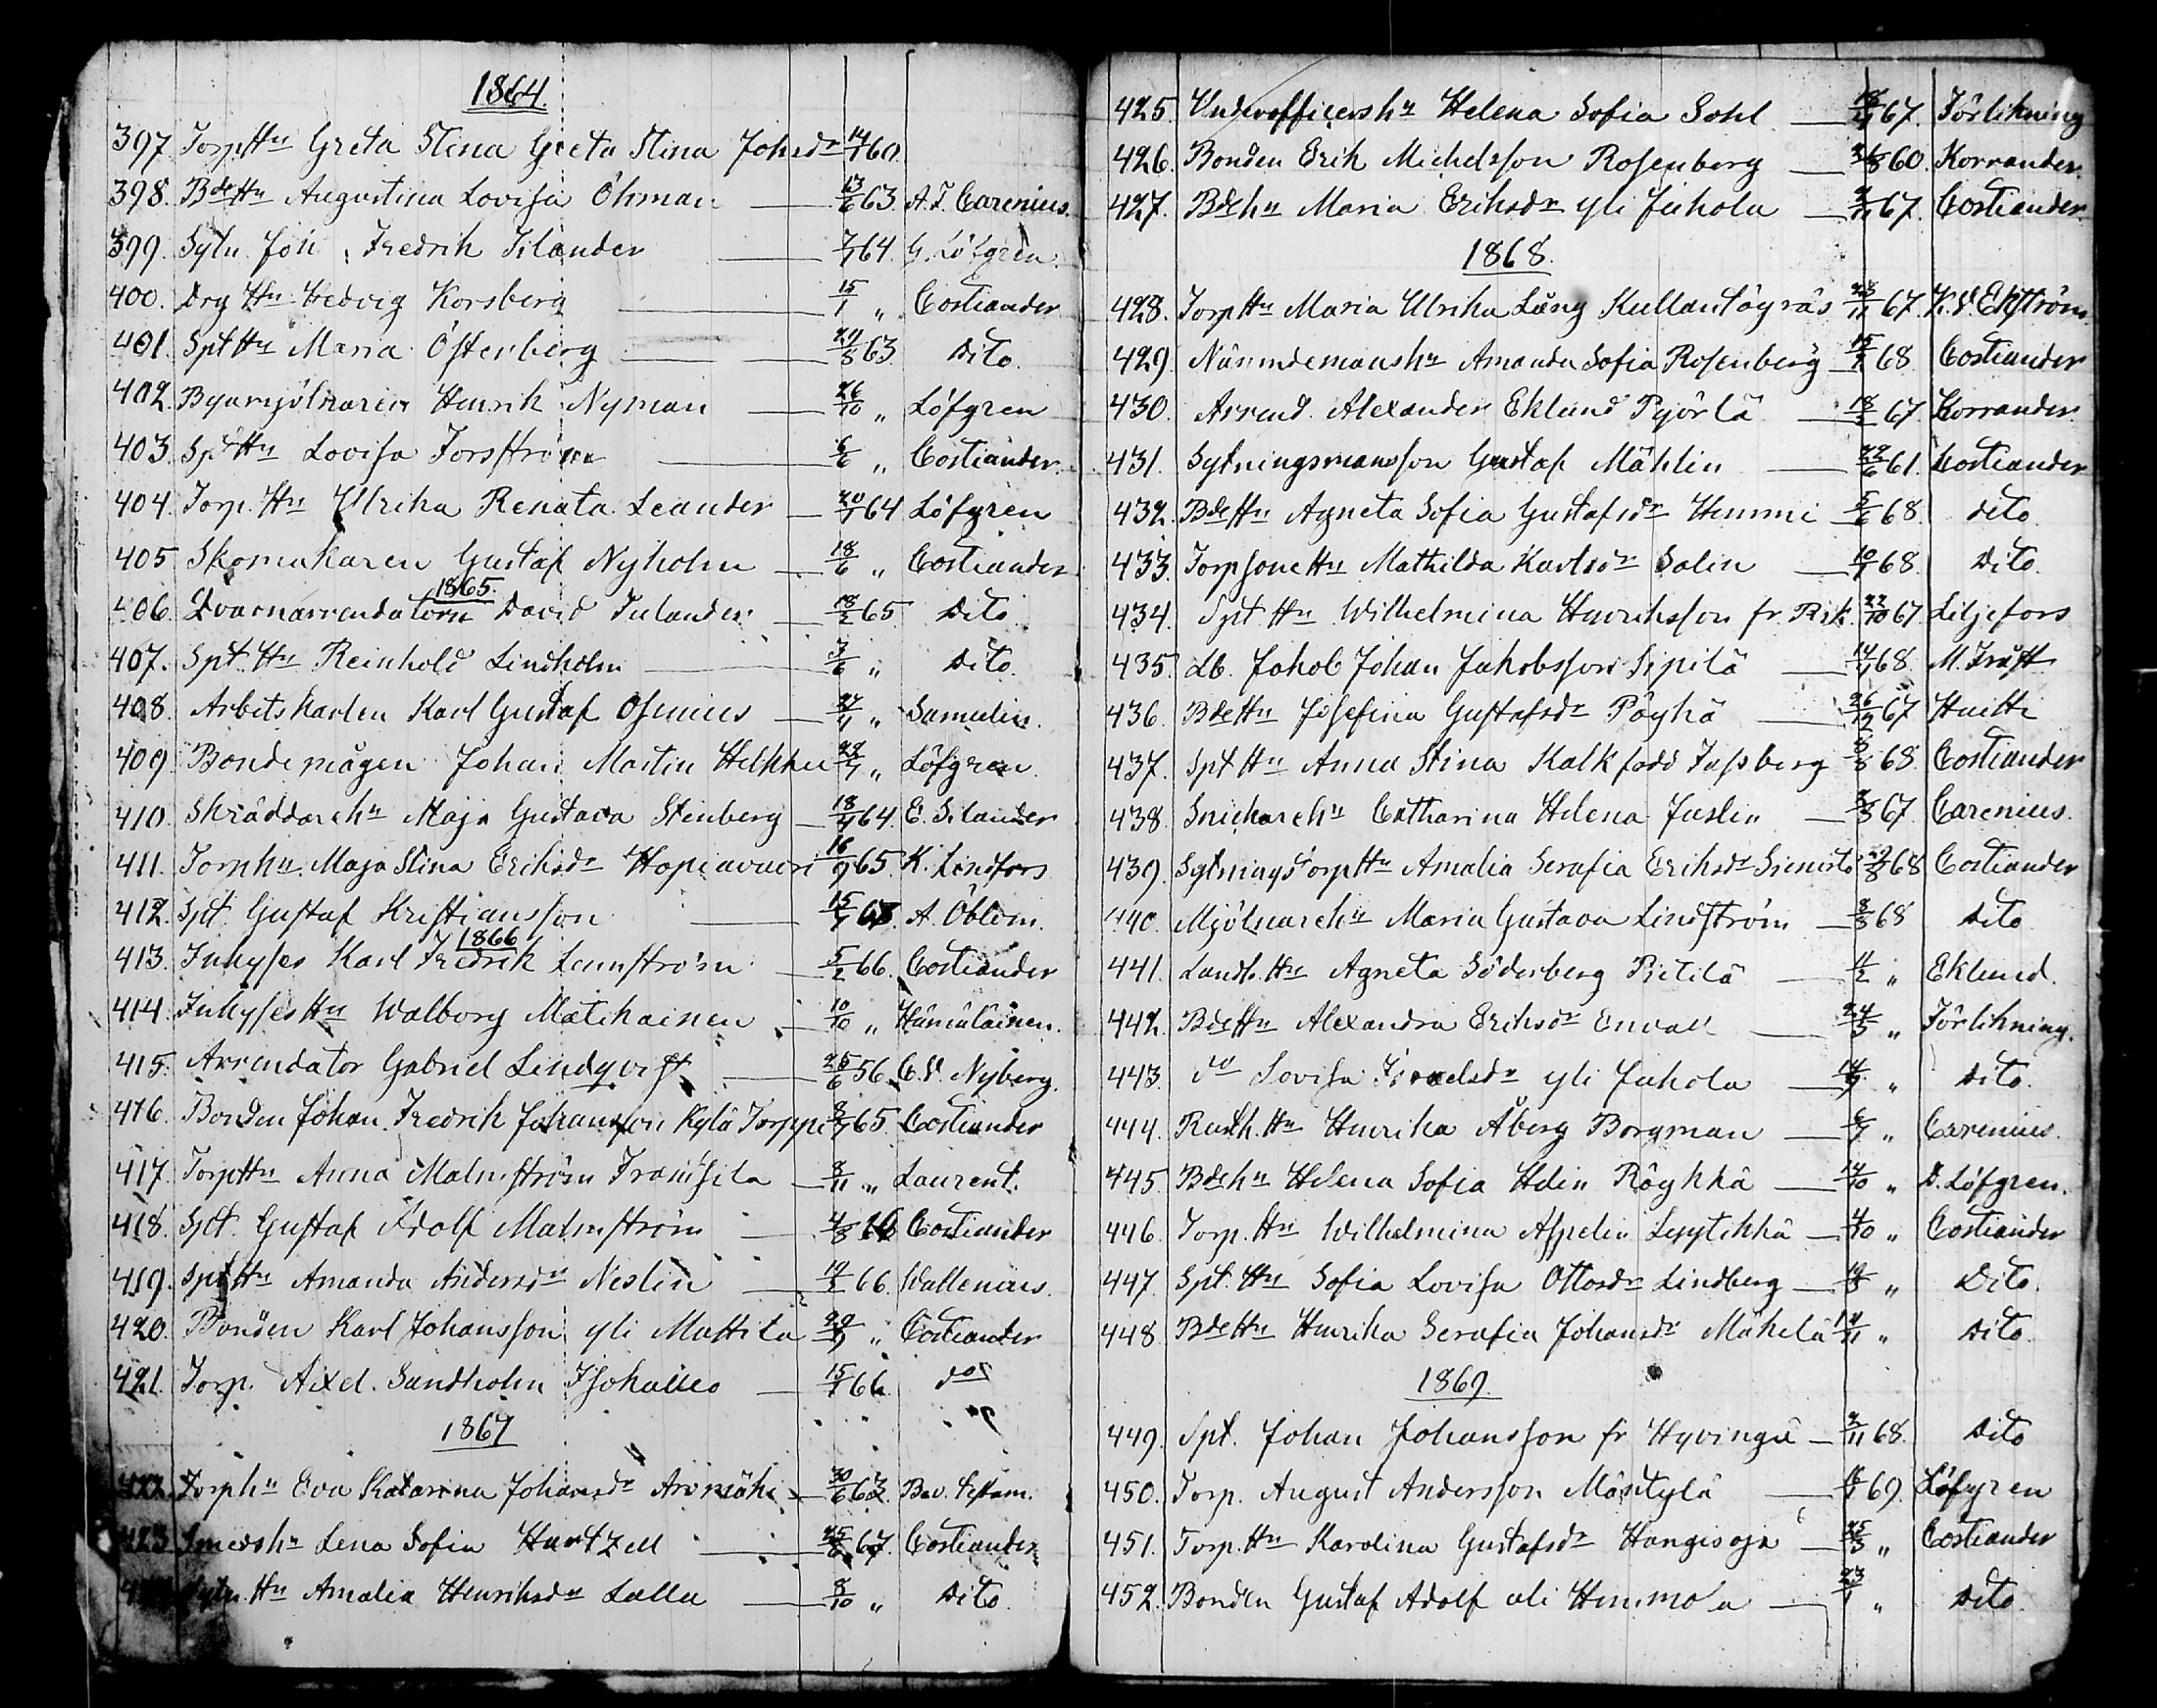 1864.
397. Torp.Hu Greta Stina Greta Stina Johsdr 14/1 60.
398. BdeHu Augustina Lovisa Öhman 13/6 63. A. F. Carenius.
399. Sytn. Joh. Fredrik Silander 7/1 64. G. Löfgren.
400. Drg Hu Hedvig Korsberg 15/1 „ Costiander
401. Spt Hu Maria Österberg 24/5 63. Dito.
402. Byamjölnaren Henrik Nyman 26/10 „ Löfgren
403. Spt Hu Lovisa Forsström 6/6 „ Costiander.
404. Torp. Hu Ulrika Renata Leander 20/1 64 Löfgren
405 Skomakaren Gustaf Nyholm 18/6 „ Costiander
1865.
406. Qvarnarrendatorn David Julander 18/2 65 Dito
407. Spt. Hu Reinhold Lindholm 3/6 „ Dito.
408. Arbetskarlen Karl Gustaf Osenius „ Samulin.
409. Bondemågen Johan Martin „ Löfgren.
410. Skräddareh. Maja Gustava Stenberg 18/4 64. E. Silander
411. Torph. Maja Stina Eriksdr Hopeavuori 16/9 65. K. Lindfors
412. Spt. Gustaf Kristiansson A. Öblom.
1866
413. Inhyses Karl Fredrik Lennström 5/2 66. Costiander
414. Inhyses Hu Walborg Matikainen 10/10 „ Hämäläinen.
415. Arrendator Gabriel Lindqvist 25/6 56. C. V. Nyberg.
416. Bonden Johan Fredrik Johansson Kylä Torppa 65. Costiander
417. Torp.Hu Anna Malmström Franssila 8/11 „ Laurent.
418. Spt. Gustaf Adolf Malmström Costiander
419. Spt Hu Amanda Andersdr Neslin 66. Wallenius.
420. Bonden Karl Johansson yli Mattila „ Costiander
421. Torp. Axel Sandholm Isokallio 15/1 66. do
1867
422. Torph. Eva Katarina Johansdr 30/6 63. Bev. Testam.
423. Smedsh. Lena Sofia Hartzell 25/6 67. Costiander
Sytn. Hu Amalia Henriksdr Lalla 8/10 „ Dito.
425. Underofficersh. Helena Sofia Sohl 67. Förlikning
426. Bonden Erik Michelsson Rosenberg 60. Korrander.
427. Bdeh. Maria Eriksdr yli Juhola 67. Costiander
1868.
428. Torp Hu Maria Ulrika Lång Kullantögräs 23/11 67. K. V. Ekström.
429. Nämndemansh. Amanda Sofia Rosenberg 15/1 68 Costiander
430. Arrend. Alexander Eklund Pyörlä 18/2 67. Korrander.
431. Sytningsmansson Gustaf Mählin 22/6 61. Costiander
432. BdeHu Agneta Sofia Gustafsdr Hemmi 5/6 68. dito
433. Torpsone Hu Mathilda Karlsdr Salin 10/1 68. Dito.
434. Spt Hu Wilhelmina Henriksson fr. Rik. 22/10 67. Liljefors
435. Lb. Jakob Johan Jakobsson Sipilä 14/1 68. M. Träff
436. BdeHu Josefina Gustafsdr Pöyhö 26/12 67 Huitti
437. Spt Hu Anna Stina Kalk född Jussberg 68. Costiander
438. Snickareh. Catharina Helena Juslin 67 Carenius.
439. Sytningstorp Hu Amalia Serafia Eriksdr 68 Costiander
440. Mjölnareh. Maria Gustava Lindström 8/3 68 Dito
441. Landb. Hu Agneta Söderberg Pietilä 11/2 „ Eklund.
442. BdeHu Alexandra Eriksdr Envall 24/5 „ Förlikning.
443. do Lovisa Israelsdr yli Juhola „ Dito.
444. Rusth. Hu Henrika Åberg Borgman 6/7 „ Carenius.
445. Bdeh. Helena Sofia Helin Röykkä 14/10 „ D. Löfgren.
446. Torp. Hu Wilhelmina Aspelin Lepytikkä 4/10 „ Costiander
447. Spt. Hu Sofia Lovisa Ottosdr Lindberg „ Dito.
448. BdeHu Henrika Serafia Johansdr Mäkelä „ Dito.
1869.
449. Spt. Johan Johansson fr Hyvingä 2/11 68. Dito
450. Torp. August Andersson Mäntylä 69. Löfgren
451. Torp. Hu Karolina Gustafsdr Hangisoja 25/3 „ Costiander
452. Bonden Gustaf Adolf ali Himmola 23/1 „ Dito.